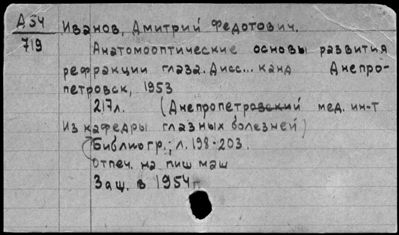 А54
719
Иванов, Дмитрий Федотович.
Анатомооптические основы развития
рефракции глаза. Дисс... канд Днепро-
петровск, 1953
217л. (Днепропетровский мед. ин-т
Из кафедры глазных болезней)
Библиогр.; л. 198-203.
Отпеч. на пиш маш
Защ. в 1954г